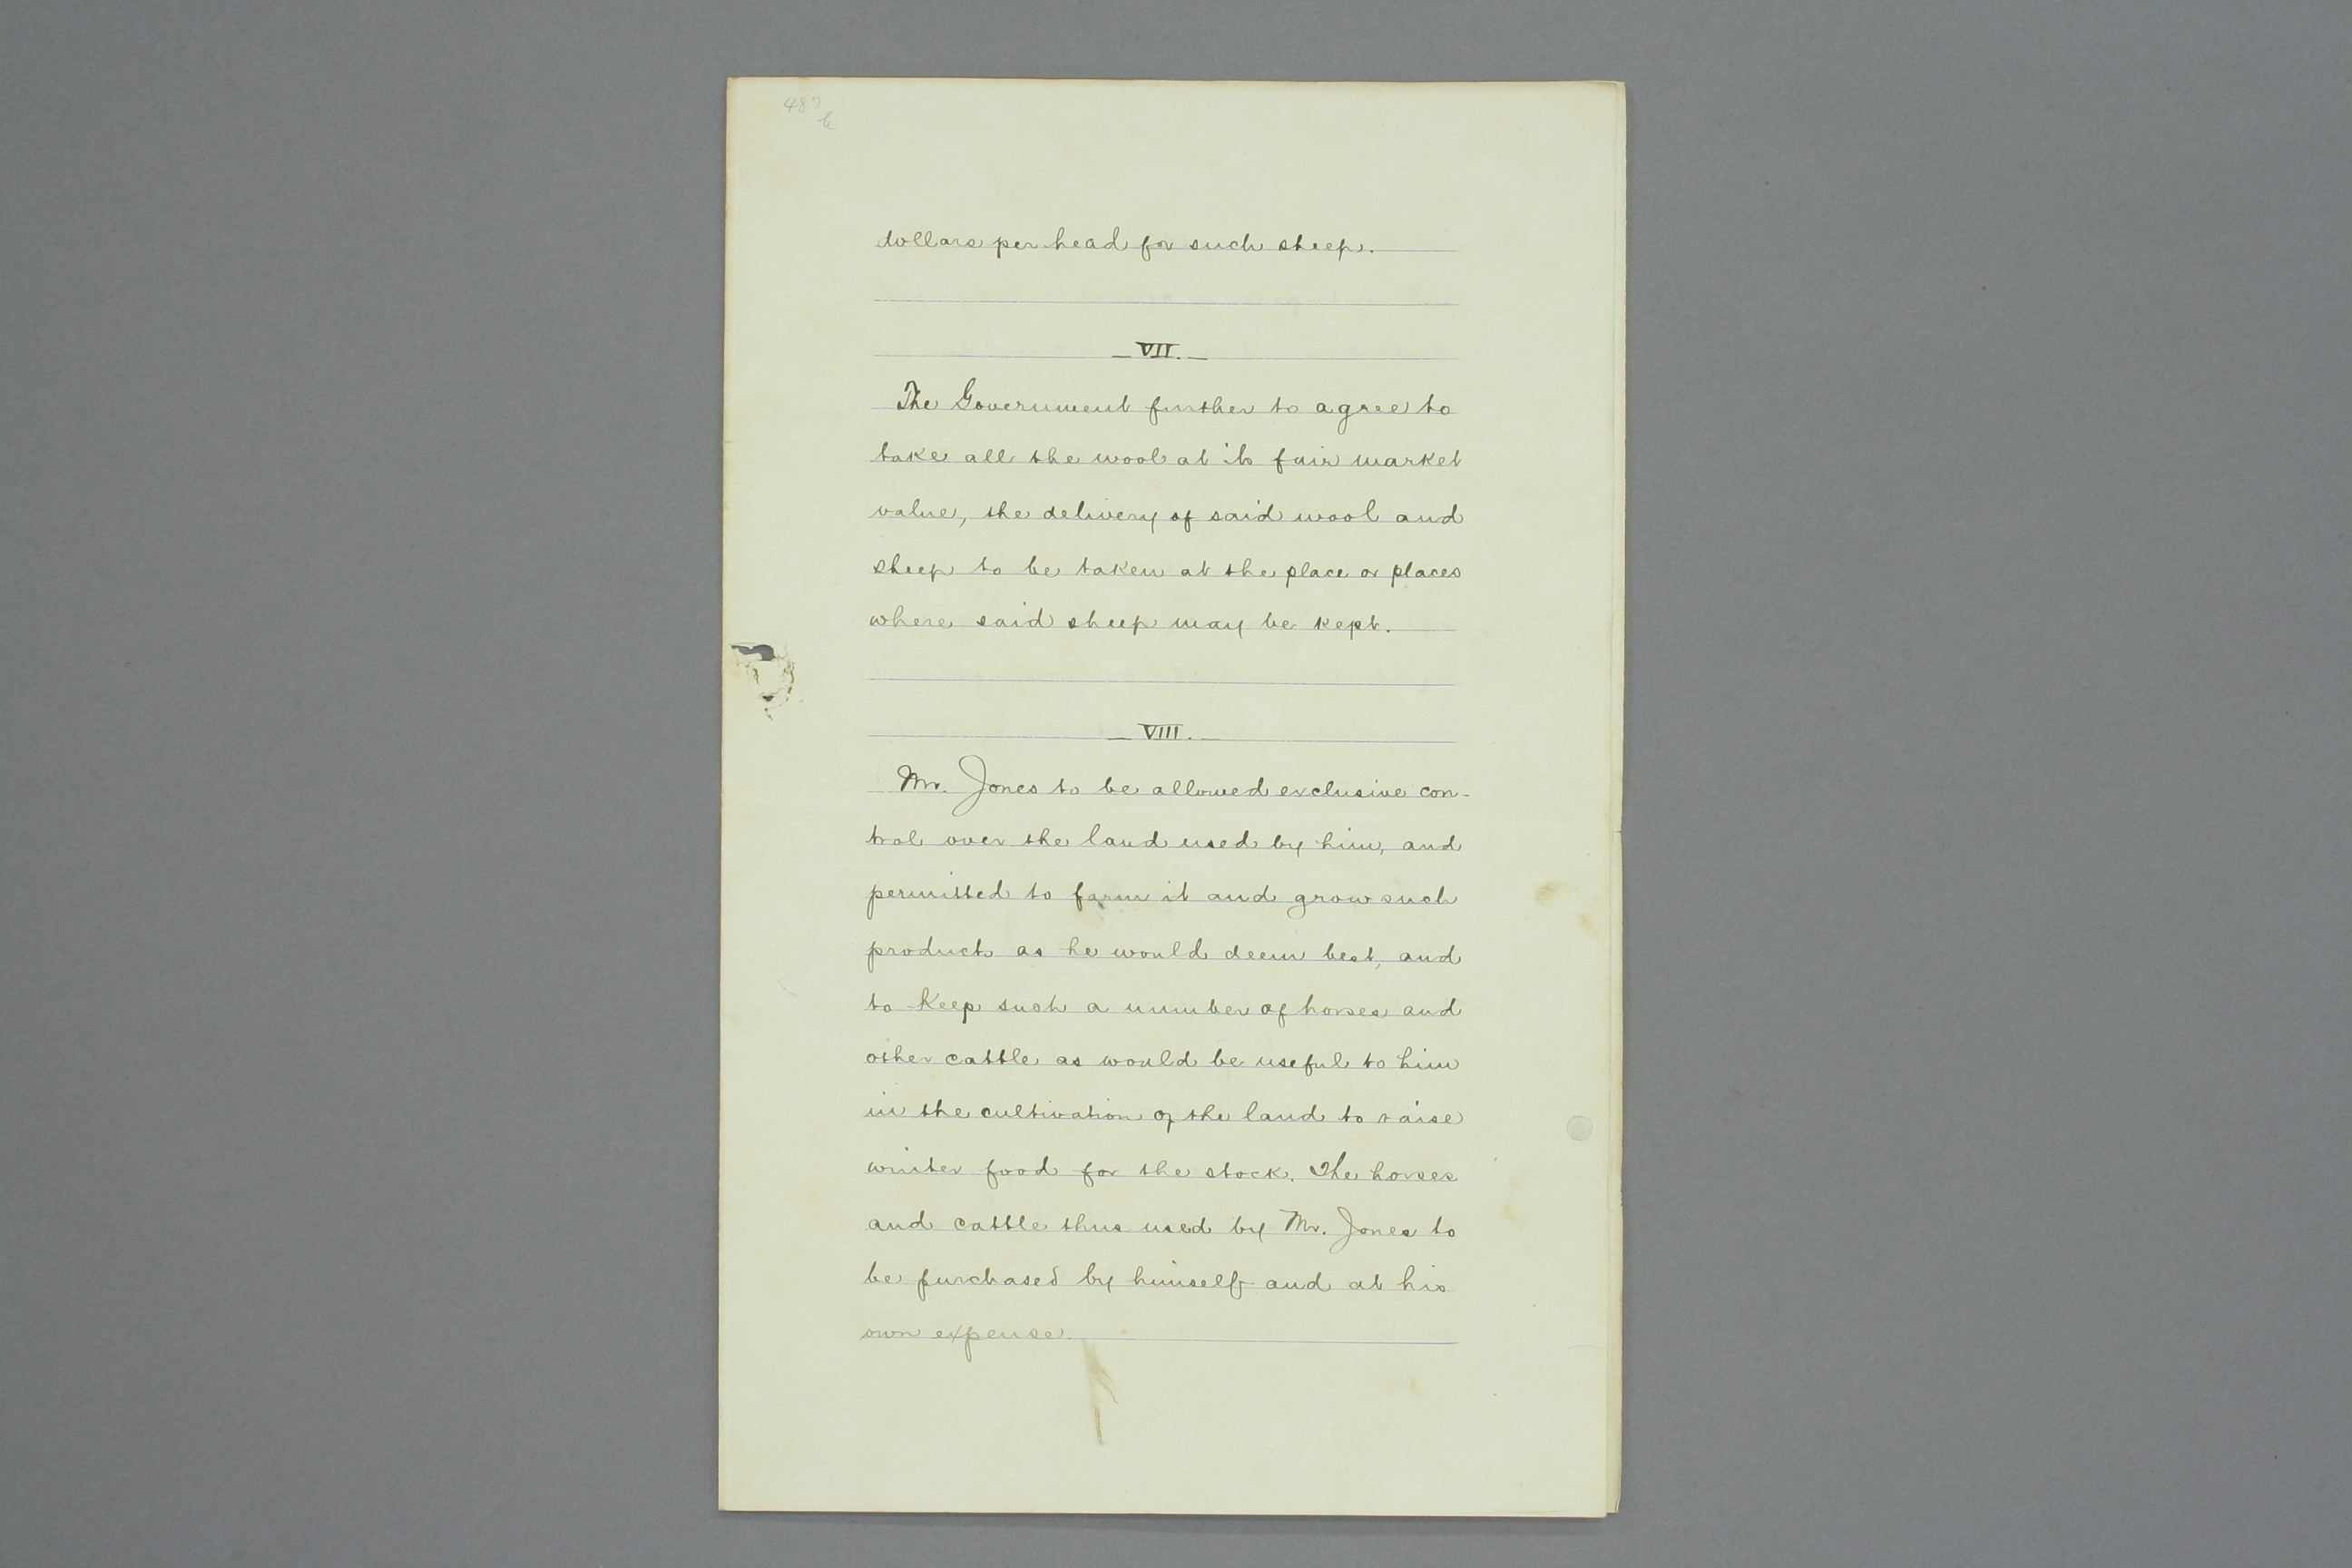 487
b
dollars per head for such sheep.
VII.
The Government further to agree to
take all the wool at its fair market
value, the delivery of said wool and
sheep to be taken at the place or places
where said sheep may be kept.
VIII.
Mr. Jones to be allowed exclusive con-
trol over the land used by him, and
permitted to farm it and grow such
products as he would deem best, and
to keep such a number of horses and
other cattle as would be useful to him
in the cultivation of the land to raise
winter food for the stock. The horses
and cattle thus used by Mr. Jones to
be purchased by himself and at his
own expense.